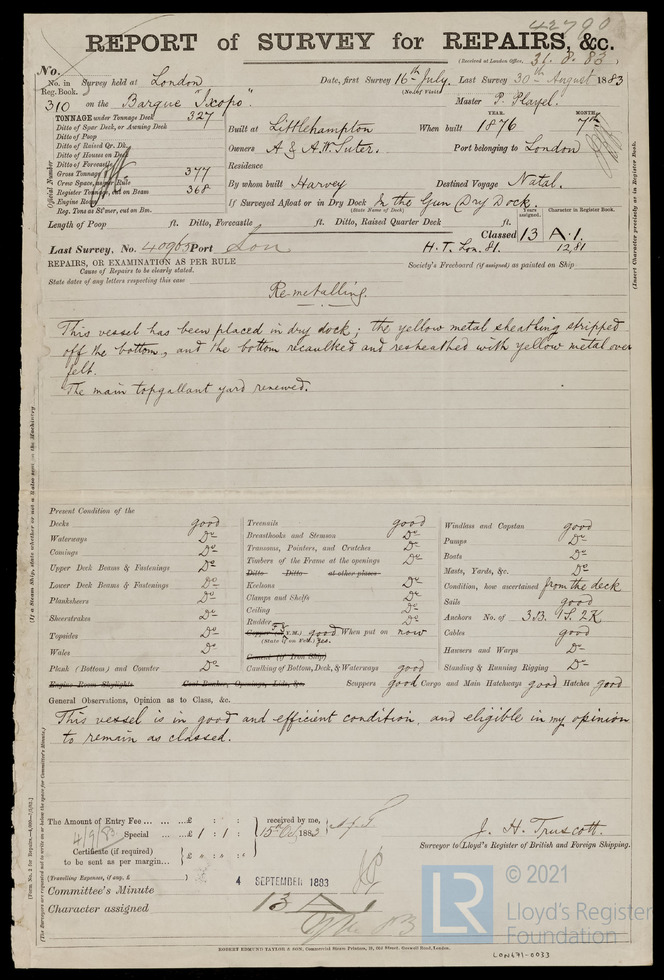 42790
REPORT of SURVEY for REPAIRS, &c.
(Received at London Office, 31. 8. 83.)
No.
No. in Reg. Book. Survey held at London Date, first Survey 16th July. Last Survey 30th August 1883
(No. of Visits)
310 on the Barque "Ixopo" Master P. Playel.
TONNAGE under Tonnage Deck 327
Ditto of Spar Deck, or Awning Deck
Ditto of Poop
Ditto of Raised Qr. Dk.
Ditto of Houses on Deck
Ditto of Forecastle
Gross Tonnage 377
Crew Space, as per Rule
Register Tonnage, cut on Beam 368
Engine Room
Reg. Tons as St'mer, cut on Bm.
Official Number
YEAR. MONTH.
Built at Littlehampton When built 1876 7th
Owners A. & A.W. Suter. Port belonging to London
Residence
By whom built Harvey Destined Voyage Natal.
If Surveyed Afloat or in Dry Dock In the Gun Dry Dock.
(State Name of Dock)
Length of Poop ft. Ditto, Forecastle ft. Ditto, Raised Quarter Deck ft.
Years assigned. Character in Register Book.
Last Survey, No. 40963 Port Lon Classed 13 A.1.
H.T. Lon. 81. 12,81
REPAIRS, OR EXAMINATION AS PER RULE Society's Freeboard (if assigned) as painted on Ship
Cause of Repairs to be clearly stated.
State dates of any letters respecting this case
Re-metalling.
This vessel has been placed in dry dock; the yellow metal sheathing stripped
off the bottom, and the bottom recaulked and resheathed with yellow metal over
felt.
The main topgallant yard renewed.
Present Condition of the
Decks good
Waterways Do
Comings Do
Upper Deck Beams & Fastenings Do
Lower Deck Beams & Fastenings Do
Planksheers Do
Sheerstrakes Do
Topsides Do
Wales Do
Plank (Bottom) and Counter Do
Engine Room Skylights Coal Bunker, Openings, Lids, &c.
Treenails good
Breasthooks and Stemson Do
Transoms, Pointers, and Crutches Do
Timbers of the Frame at the openings Do
Ditto Ditto at other places
Keelsons Do
Clamps and Shelfs Do
Ceiling Do
Rudder Do
Copper (or Y.M.) good When put on now
(State if on Felt.) yes.
Cement (if Iron Ship)
Caulking of Bottom, Deck, & Waterways good
Scuppers good Cargo and Main Hatchways good Hatches good
Windlass and Capstan good
Pumps Do
Boats Do
Masts, Yards, &c. Do
Condition, how ascertained from the deck
Sails good
Anchors No. of 3B. 1S. 2K
Cables good
Hawsers and Warps Do
Standing & Running Rigging Do
General Observations, Opinion as to Class, &c.
This vessel is in good and efficient condition, and eligible in my opinion
to remain as classed.
The Amount of Entry Fee £ : :
4/9/83 Special £ 1 : 1 :
Certificate (if required) to be sent as per margin £
received by me,
15th Oct. 1883
J. H. Truscott.
Surveyor to Lloyd's Register of British and Foreign Shipping.
(Travelling Expenses, if any, £ )
Committee's Minute 4 SEPTEMBER 1883
Character assigned 13 A 1
ROBERT EDMUND TAYLOR & SON, Commercial Steam Printers, 19, Old Street, Goswell Road, London.
LON671-0033
(Insert Character precisely as in Register Book.
LR
© 2021
Lloyd's Register
Foundation